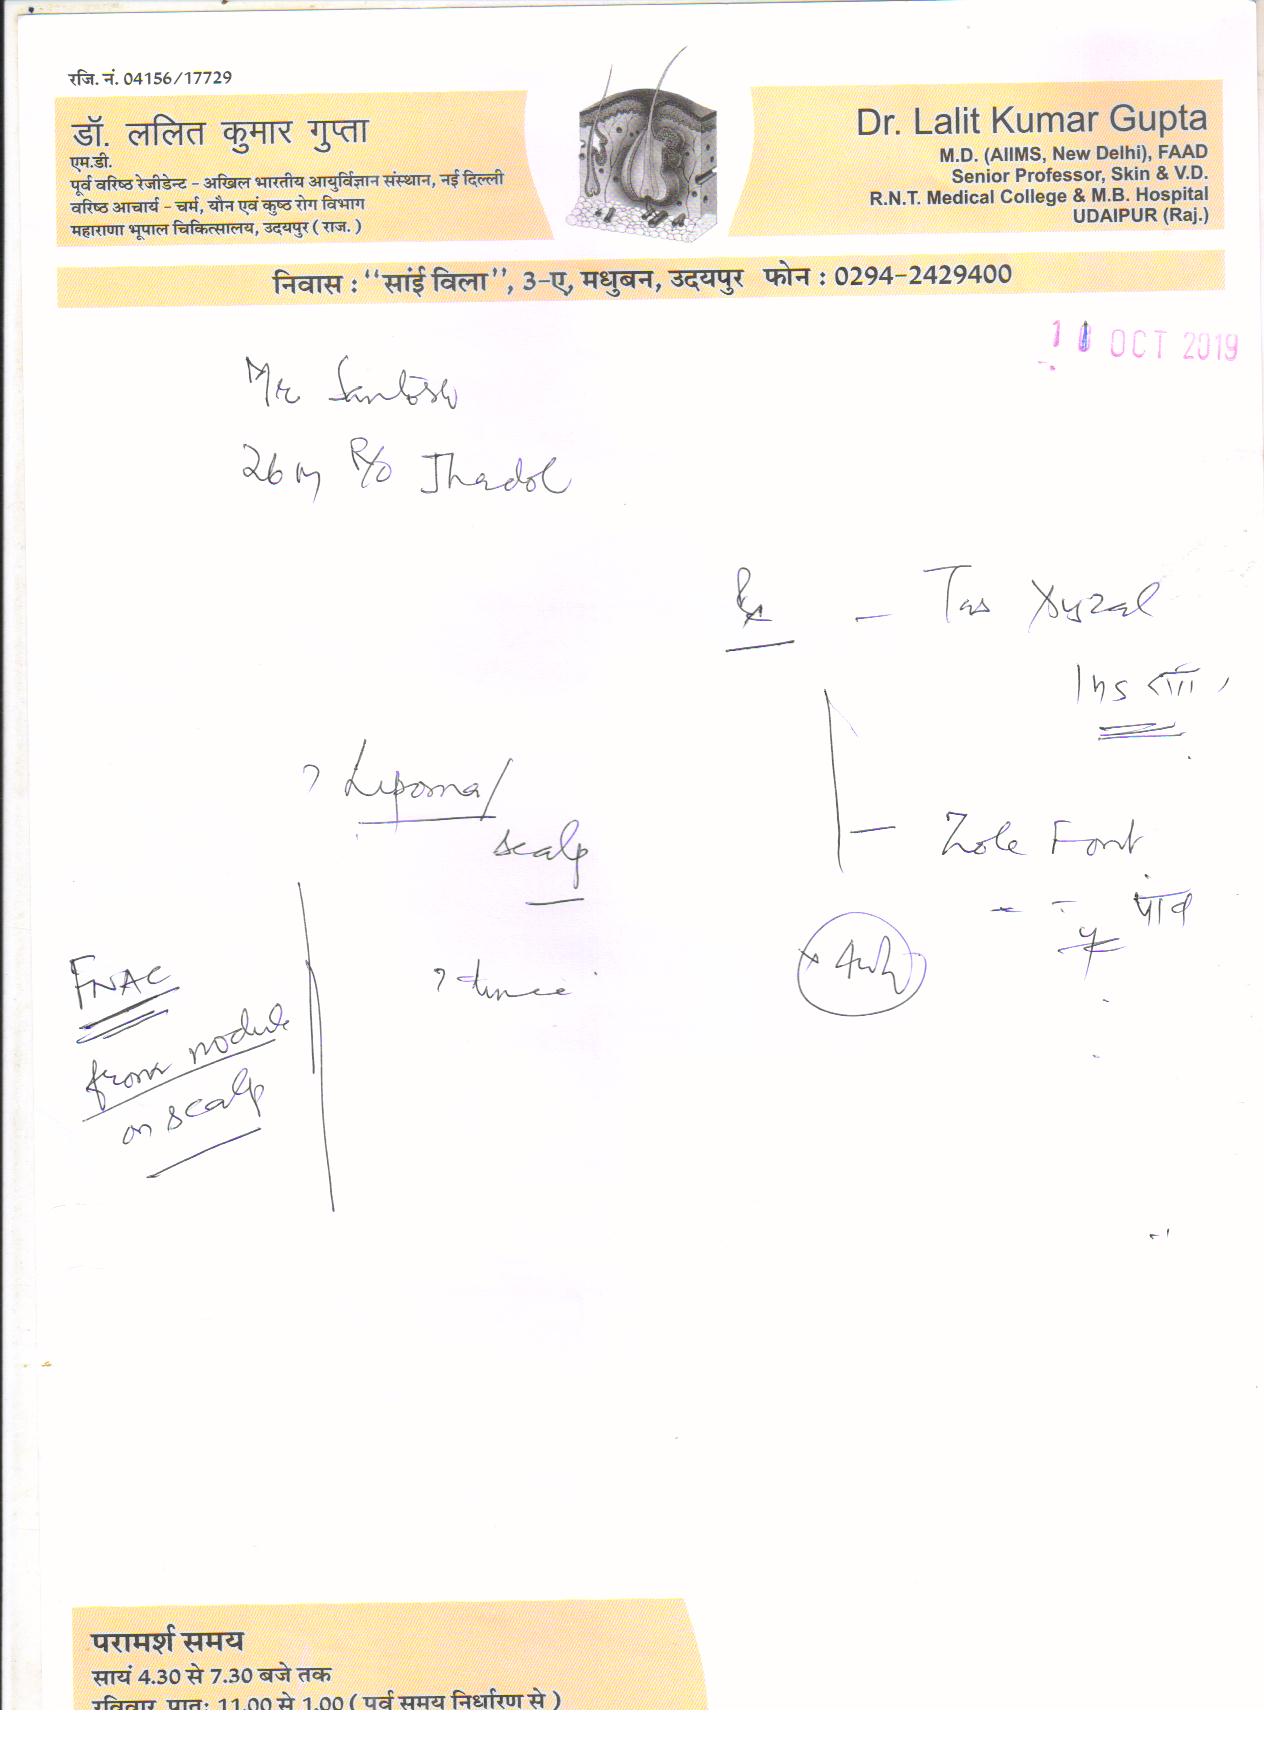 रजि. नं. 04156/17729
डॉ. ललित कुमार गुप्ता
एम.डी.
पूर्व वरिष्ठ रेजीडेन्ट - अखिल भारतीय आयुर्विज्ञान संस्थान, नई दिल्ली
वरिष्ठ आचार्य - चर्म, यौन एवं कुष्ठ रोग विभाग
महाराणा भूपाल चिकित्सालय, उदयपुर ( राज. )
Dr. Lalit Kumar Gupta
M.D. (AIIMS, New Delhi), FAAD
Senior Professor, Skin & V.D.
R.N.T. Medical College & M.B. Hospital
UDAIPUR (Raj.)
निवास : "सांई विला", 3-ए, मधुबन, उदयपुर फोन : 0294-2429400
OCT 2019
Mr Santosh
26 R/o Jhadol
Rx - Xyzal
? Lipoma /
scalp
- Zole Fort
पाव
x 4 wk
? tinea
FNAC
from nodule
on scalp
परामर्श समय
सायं 4.30 से 7.30 बजे तक
रविवार प्रातः 11.00 से 1.00 ( पूर्व समय निर्धारण से )